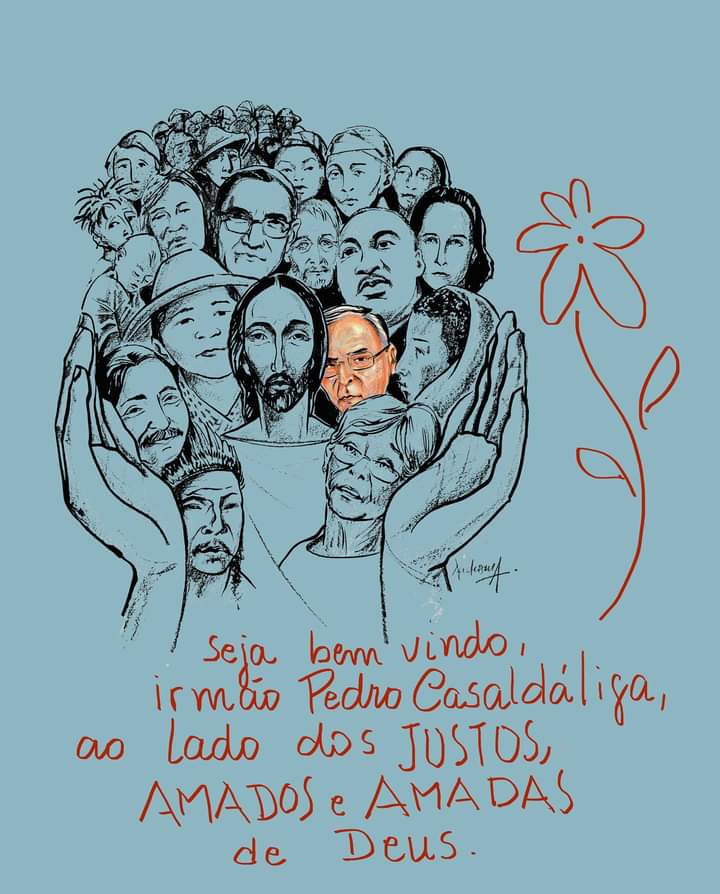 seja bem vindo,
irmão Pedro Casaldáliga,
ao lado dos JUSTOS,
AMADOS e AMADAS
de Deus.